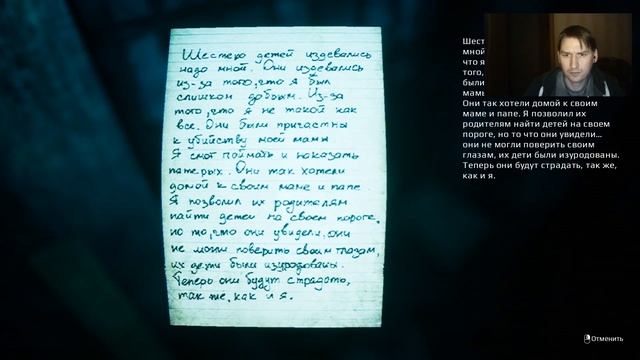 Шестеро детей издевались
надо мной. Они издевались
из-за того, что я был
слишком добрым. Из-за
того, что я не такой как
все. Они были причастны
к убийству моей мамы
Я смог поймать и наказать
пятерых. Они так хотели
домой к своим маме и папе
Я позволил их родителям
найти детей на своем пороге,
но то, что они увидели, они
не могли поверить своим глазам,
их дети были изуродованы.
Теперь они будут страдать,
так же, как и я.
Шест
мной
что я
того,
были
мамы
Они так хотели домой к своим
маме и папе. Я позволил их
родителям найти детей на своем
пороге, но то что они увидели...
они не могли поверить своим
глазам, их дети были изуродованы.
Теперь они будут страдать, так же,
как и я.
Отменить